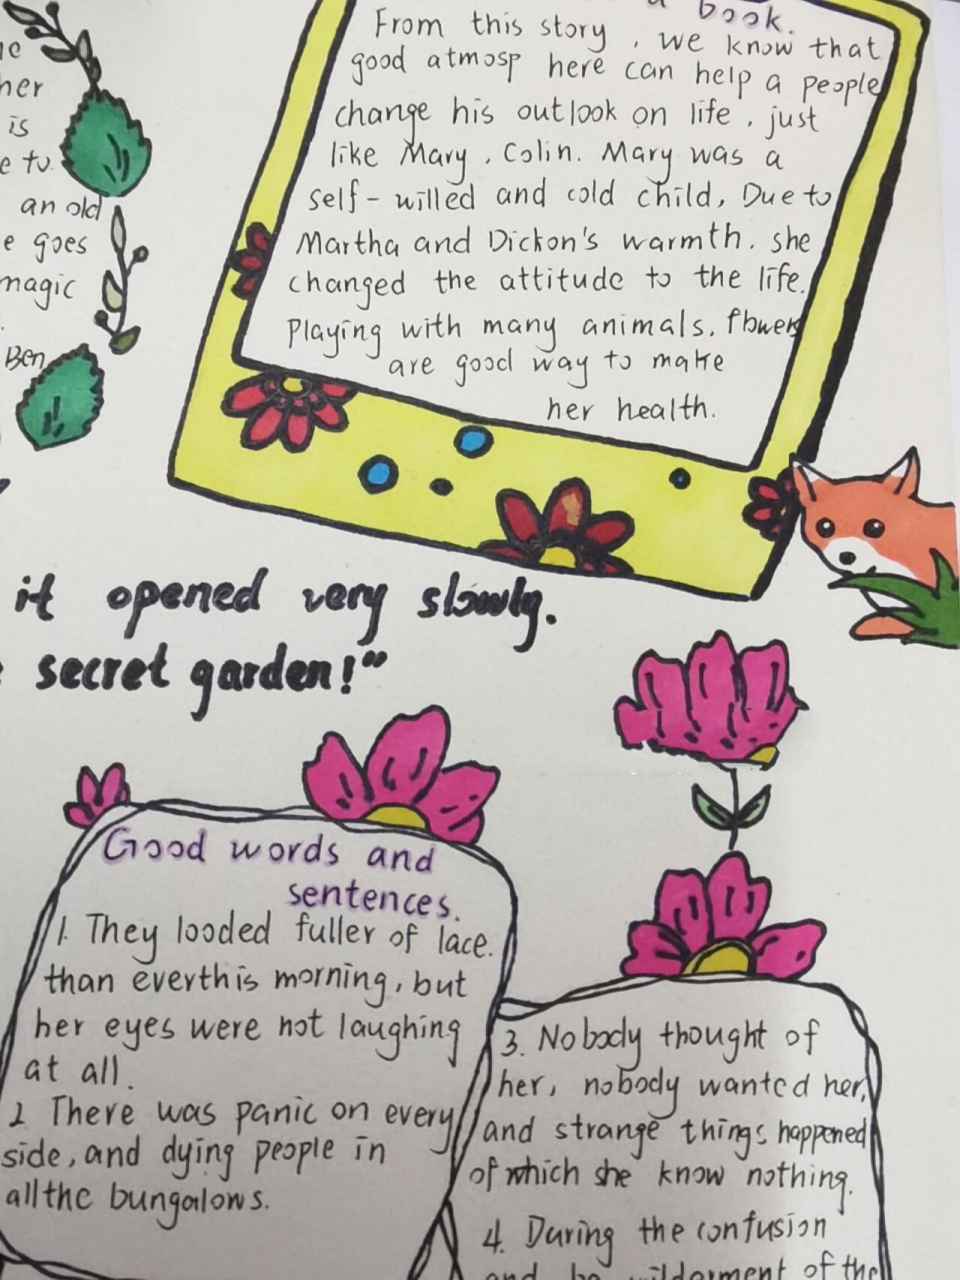 her
is
an old
e goes
magic
Ben
book.
From this story , we know that
good atmosp here can help a people
change his outlook on life , just
like Mary , Colin. Mary was a
self-willed and cold child, Due to
Martha and Dickon's warmth. she
changed the attitude to the life.
Playing with many animals, flowers
are good way to make
her health.
it opened very slowly.
secret garden!”
Good words and
sentences.
1. They looded fuller of lace.
than everthis morning, but
her eyes were not laughing
at all.
2 There was panic on every
side, and dying people in
allthe bungalows.
3. Nobody thought of
her, nobody wanted her,
and strange things happened
of which she know nothing.
4. During the confusion
and be wilderment of the